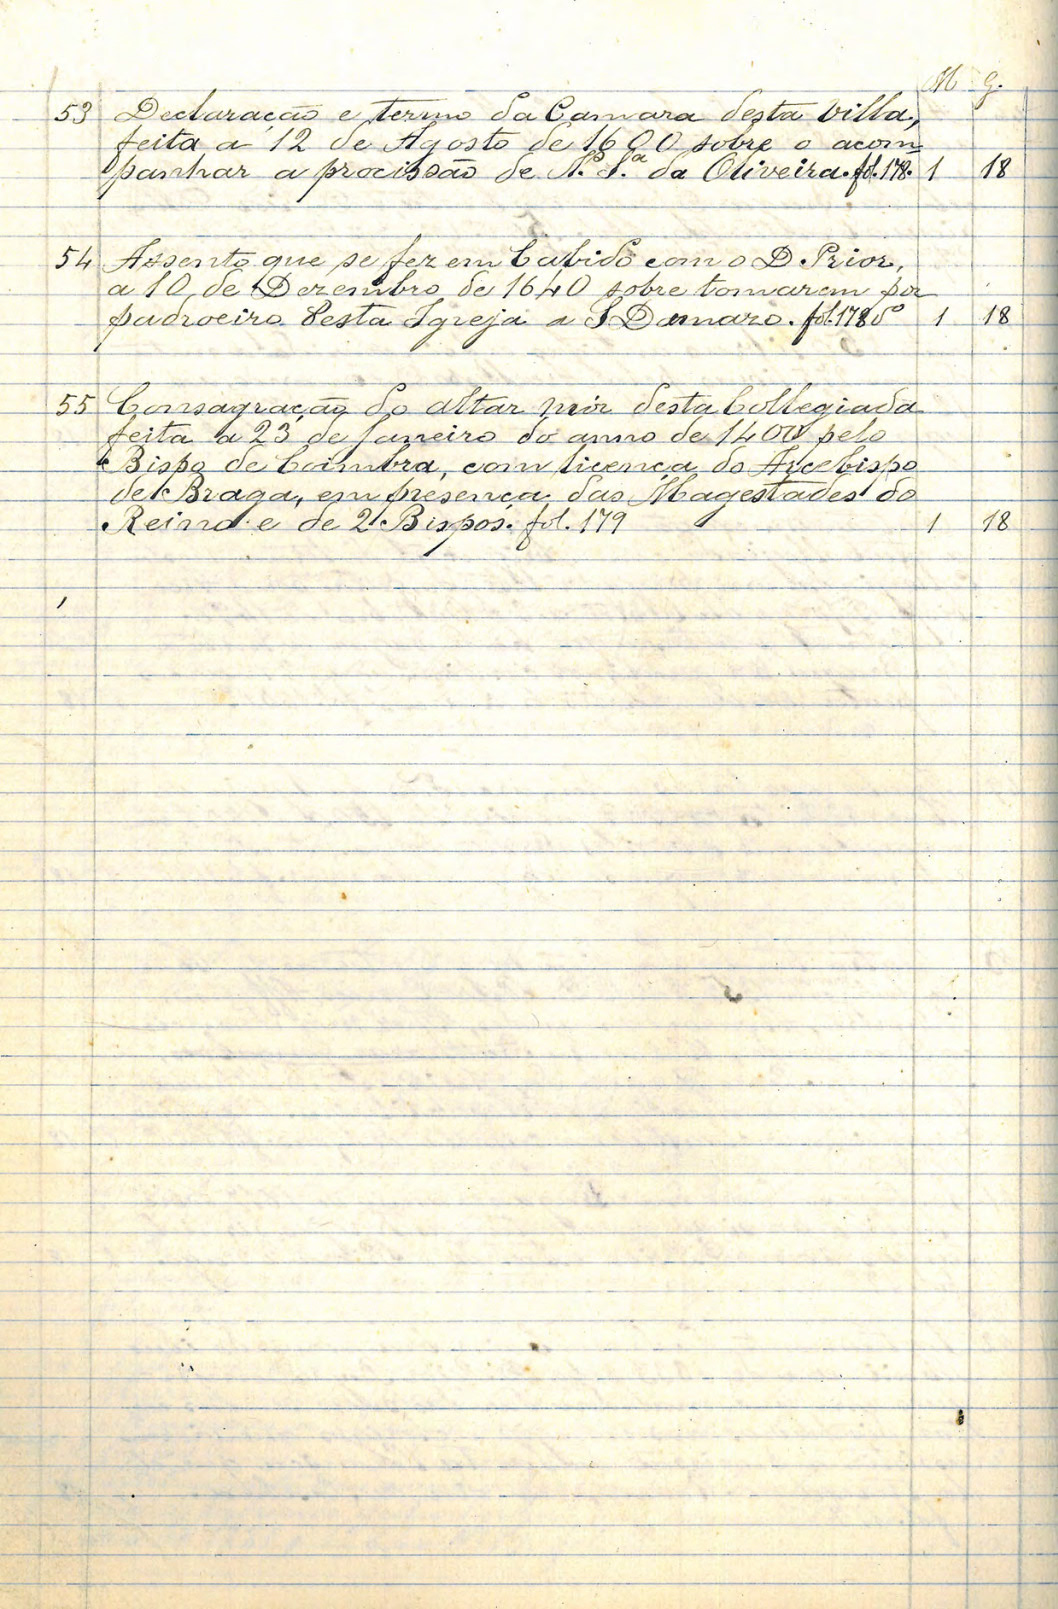 M G.
53 Declaração e termo da Camara desta villa,
feita a 12 de Agosto de 1690 sobre o acom-
panhar a procissão de N.ª S.ª da Oliveira. fol. 178. 1 18
54 Assento que se fez em Cabido com o D. Prior,
a 10 de Dezembro de 1640 sobre tomarem por
padroeiro desta Igreja a S Damazo. fol. 178 vº 1 18
55 Consagração do altar mór desta Collegiada
feita a 23 de Janeiro do anno de 1400 pelo
Bispo de Coimbra, com licença do Arcebispo
de Braga, em presença das Magestades do
Reino e de 2 Bispos. fol. 179 1 18